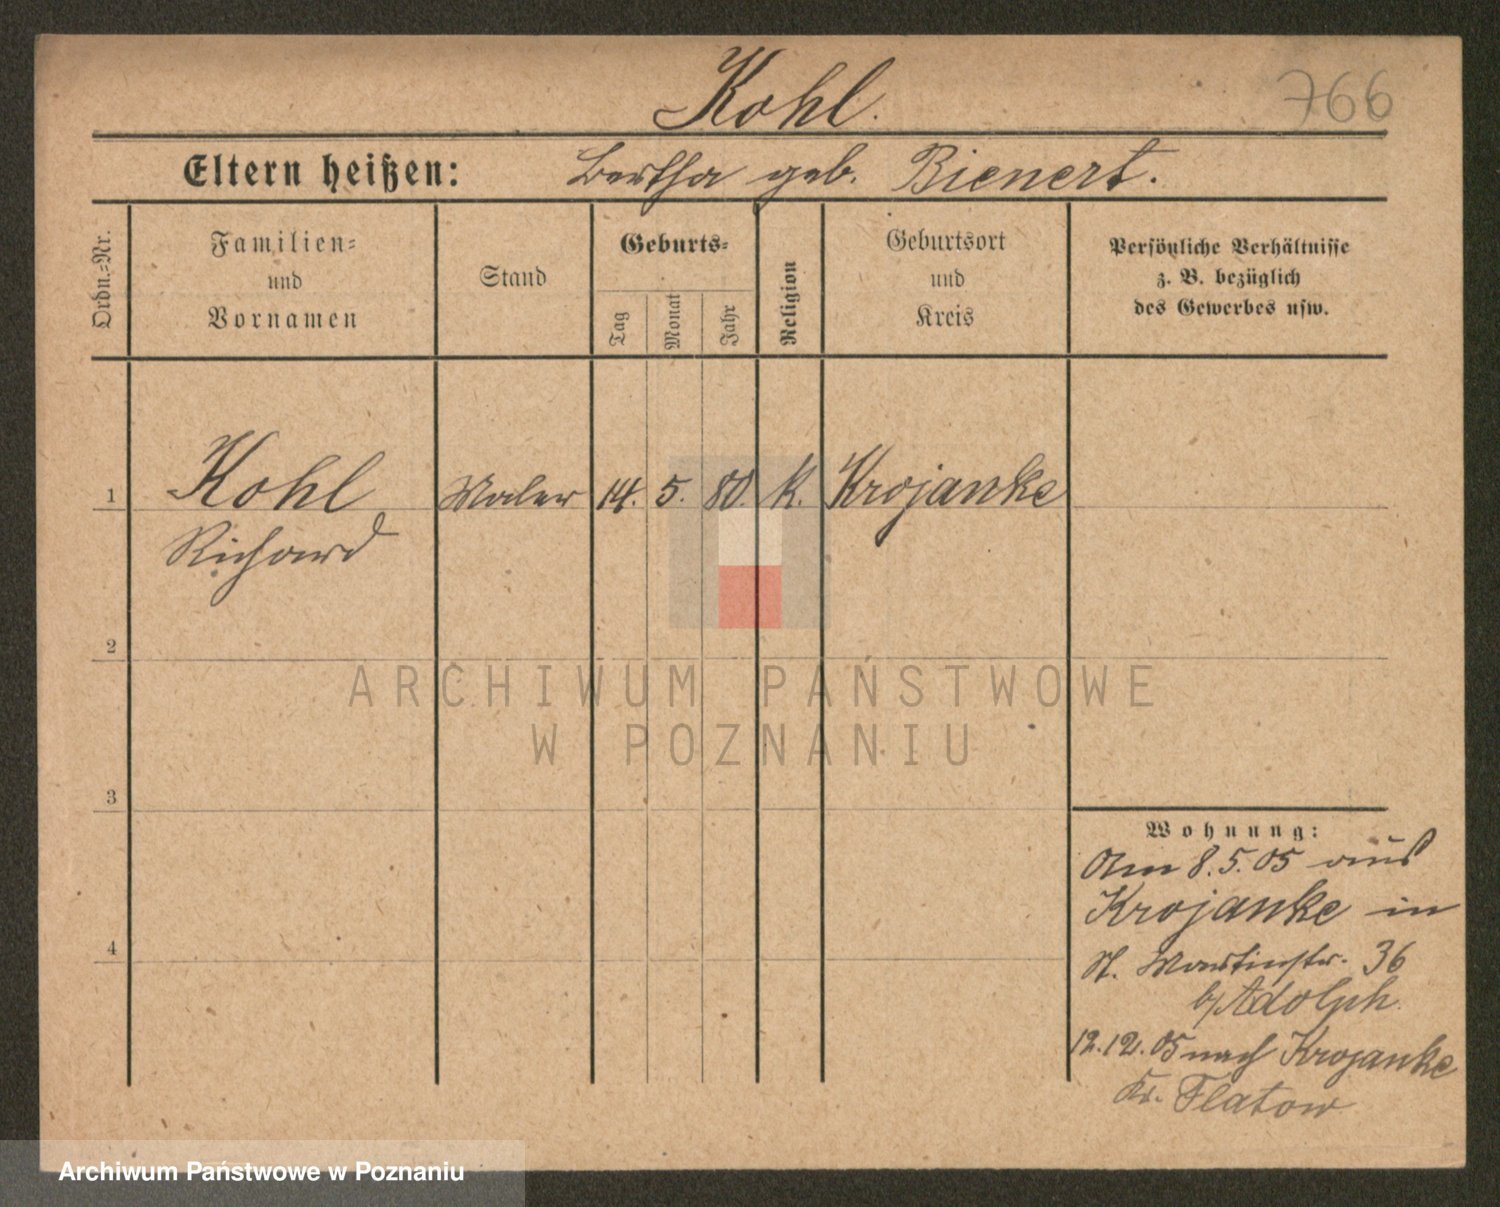 Kohl.
766
Eltern heißen: Bertha geb. Bienert.
Ordn.=Nr.
Familien=
und
Vornamen
Stand
Geburts=
Tag
Monat
Jahr
Religion
Geburtsort
und
Kreis
Persönliche Verhältnisse
z. B. bezüglich
des Gewerbes usw.
1 Kohl Maler 14. 5. 80. k. Krojanke
Richard
2
3
4
Wohnung:
Am 8.5.05 aus
Krojanke in
St. Martinstr. 36
b/Adolph.
12.12.05 nach Krojanke
Kr. Flatow
ARCHIWUM PAŃSTWOWE
W POZNANIU
Archiwum Państwowe w Poznaniu